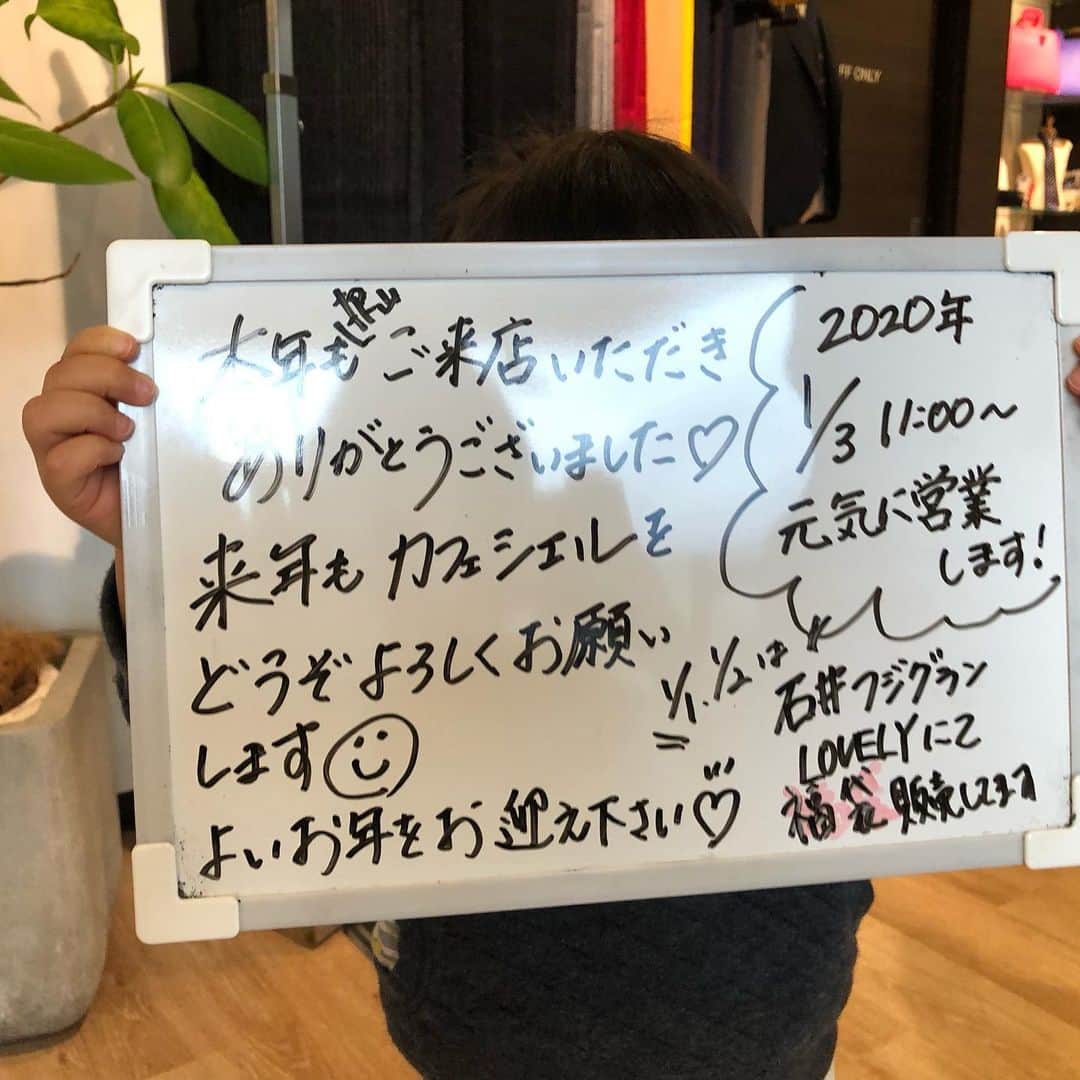 FF ONLY
本年も沢山ご来店いただき
ありがとうございました♡
来年もカフェシエルを
どうぞよろしくお願い
します☺
よいお年をお迎え下さい♡
2020年
1/3 11:00~
元気に営業
します!
1/1. 1/2は
石井フジグラン
LOVELYにて
福袋販売してます